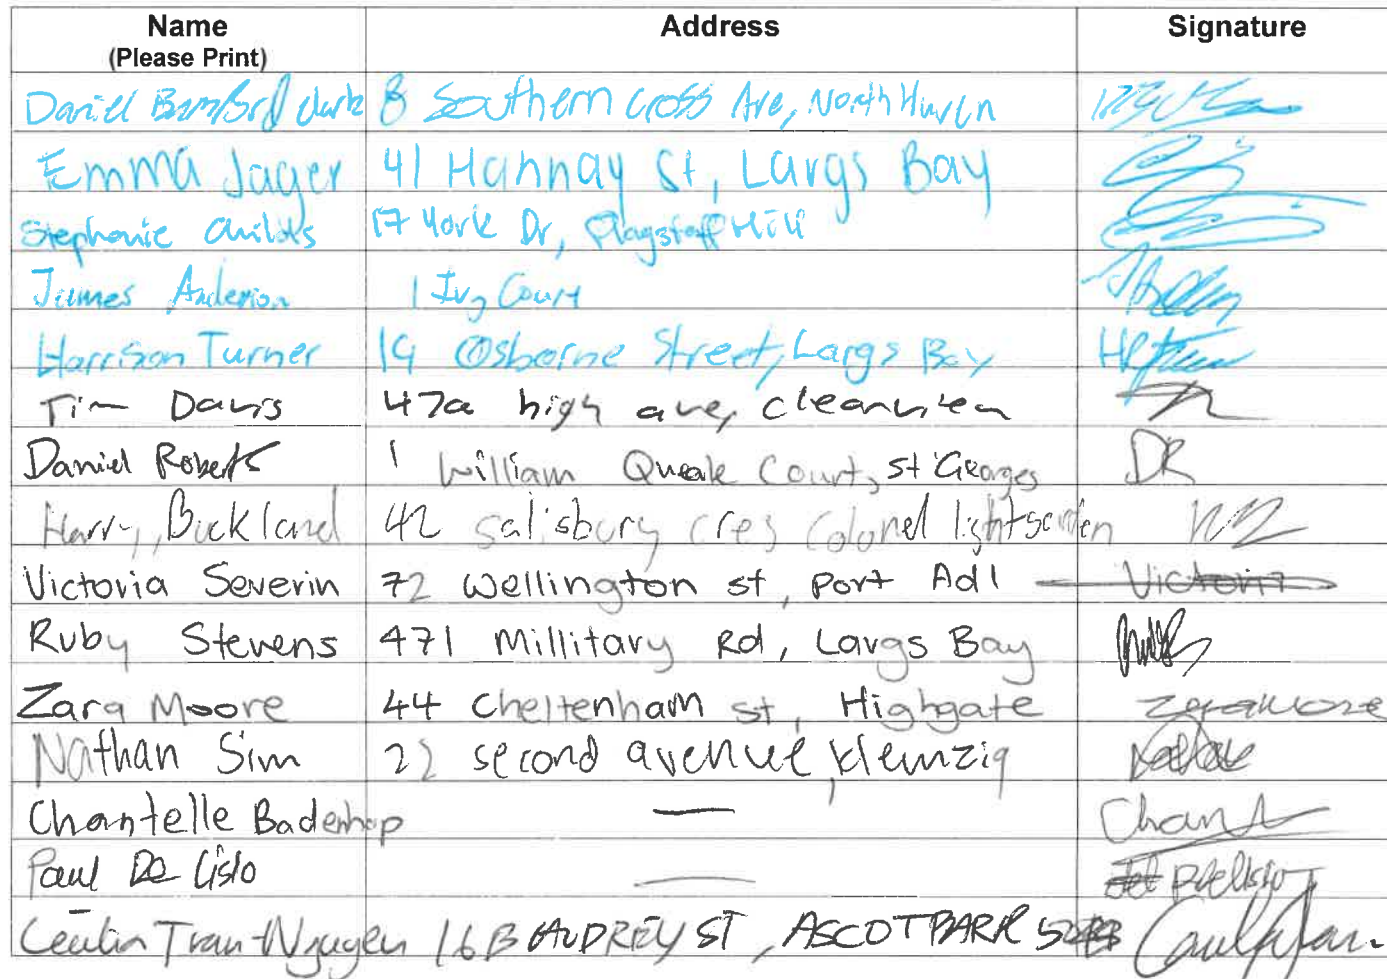 Name Address Signature
(Please Print)
Daniel Bamford Clark 8 Southern Cross Ave, North Haven
Emma Jager 41 Hannay St, Largs Bay
Stephanie Childs 17 York Dr, Flagstaff Hill
James Anderson 1 Ivy Court
Harrison Turner 19 Osborne Street, Largs Bay
Tim Davis 47a high ave, clearview
Daniel Roberts 1 William Queale Court, St Georges DR
Harry Buckland 42 Salisbury cres Colonel lightgarden
Victoria Severin 72 Wellington st, Port Adl Victoria
Ruby Stevens 471 Millitary Rd, Largs Bay
Zara Moore 44 Cheltenham st, Highgate Zara Moore
Nathan Sim 22 second avenue, klemzig
Chantelle Badenhop — Chant
Paul De Lisio — PDelisio
Tran-Nguyen 16B AUDREY ST, ASCOT PARK